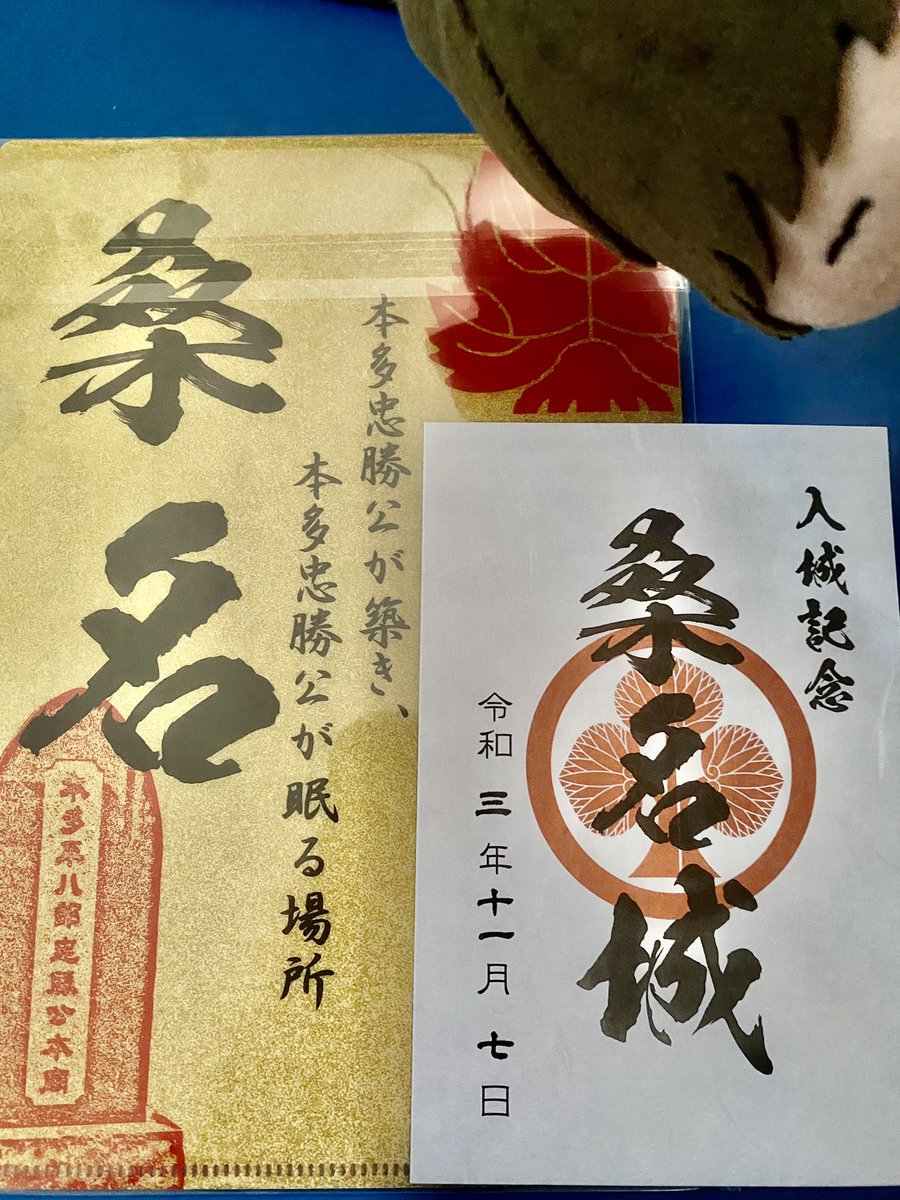 桑名
本多忠勝公が築き、
本多忠勝公が眠る場所
本多平八郎忠勝公本廟
入城記念
桑名城
令和三年十一月七日